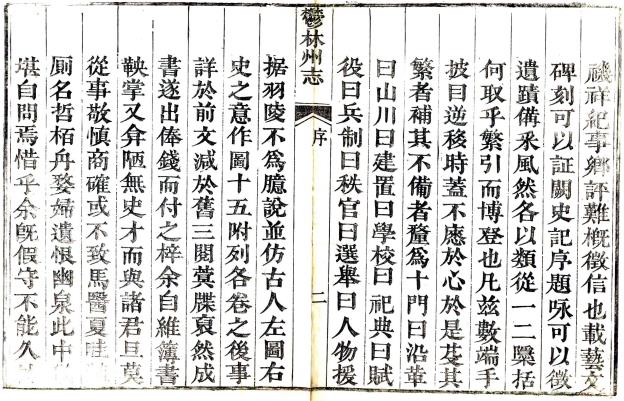 禨祥紀事鄉評難槪徵信也載藝文
碑刻可以証闕史記序題咏可以徵
遺蹟備釆風然各以類從一二檃括
何取乎繁引而博登也凡茲數端手
披目逆移時蓋不應於心於是芟其
繁者補其不備者釐爲十門曰沿革
曰山川曰建置曰學校曰祀典曰賦
役曰兵制曰秩官曰選舉曰人物援
鬱林州志
序
二
据羽陵不爲臆說並仿古人左圖右
史之意作圖十五附列各卷之後事
詳於前文減於舊三閱蓂牒裒然成
書遂出俸錢而付之梓余自維簿書
鞅掌又弇陋無史才而與諸君旦莫
從事敬慎商確或不致馬醫夏畦
厠名哲栢舟嫠婦遺恨幽泉此中
堪自問焉惜乎余旣假守不能久